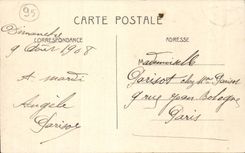 95
CARTE POSTALE
CORRESPONDANCE
ADRESSE
Dimanche
9 Août 1908
A mardi
Angèle
Parisot
Mademoiselle
Parisot chez Mme Parisot
9 rue Jean Bologne
Paris